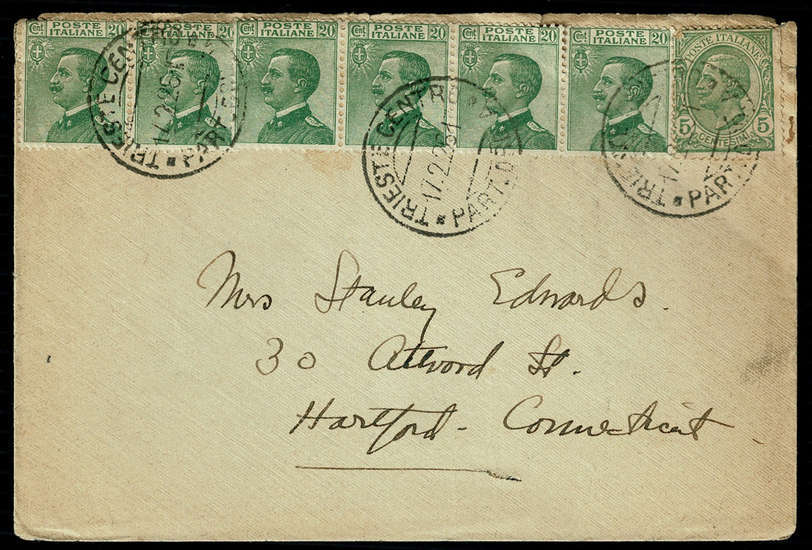 POSTE ITALIANE 20
Cmi POSTE ITALIANE 20
Cmi POSTE ITALIANE 20
Cmi POSTE ITALIANE 20
Cmi POSTE ITALIANE 20
Cmi POSTE ITALIANE 20
POSTE ITALIANE
5 CENTESIMI 5
TRIESTE CENTRO
17.2.26
TRIESTE CENTRO
17.2.26
PART.
PART.
Mrs Stanley Edwards.
30 Atwood St.
Hartford - Connecticut